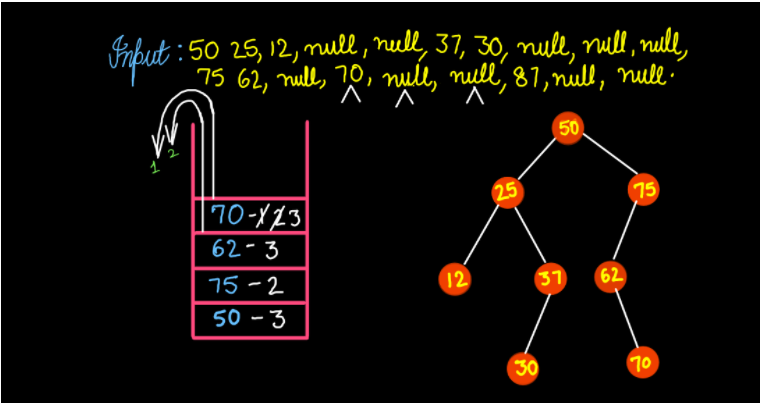 Input : 50 25, 12, null, null, 37, 30, null, null, null,
75 62, null, 70, null, null, 87, null, null.
1 2
70 - 1 2 3
62 - 3
75 - 2
50 - 3
50
25 75
12 37 62
30 70